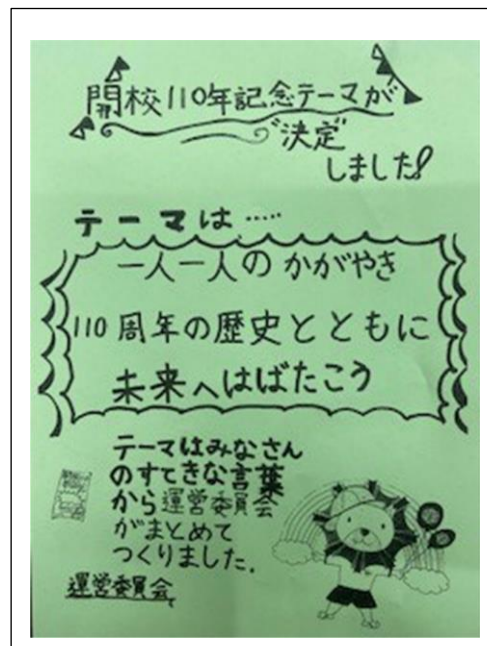 開校110年記念テーマが
決定
しました!
テーマは……
一人一人の かがやき
110周年の歴史とともに
未来へはばたこう
テーマはみなさん
のすてきな言葉
から運営委員会
がまとめて
つくりました。
運営委員会